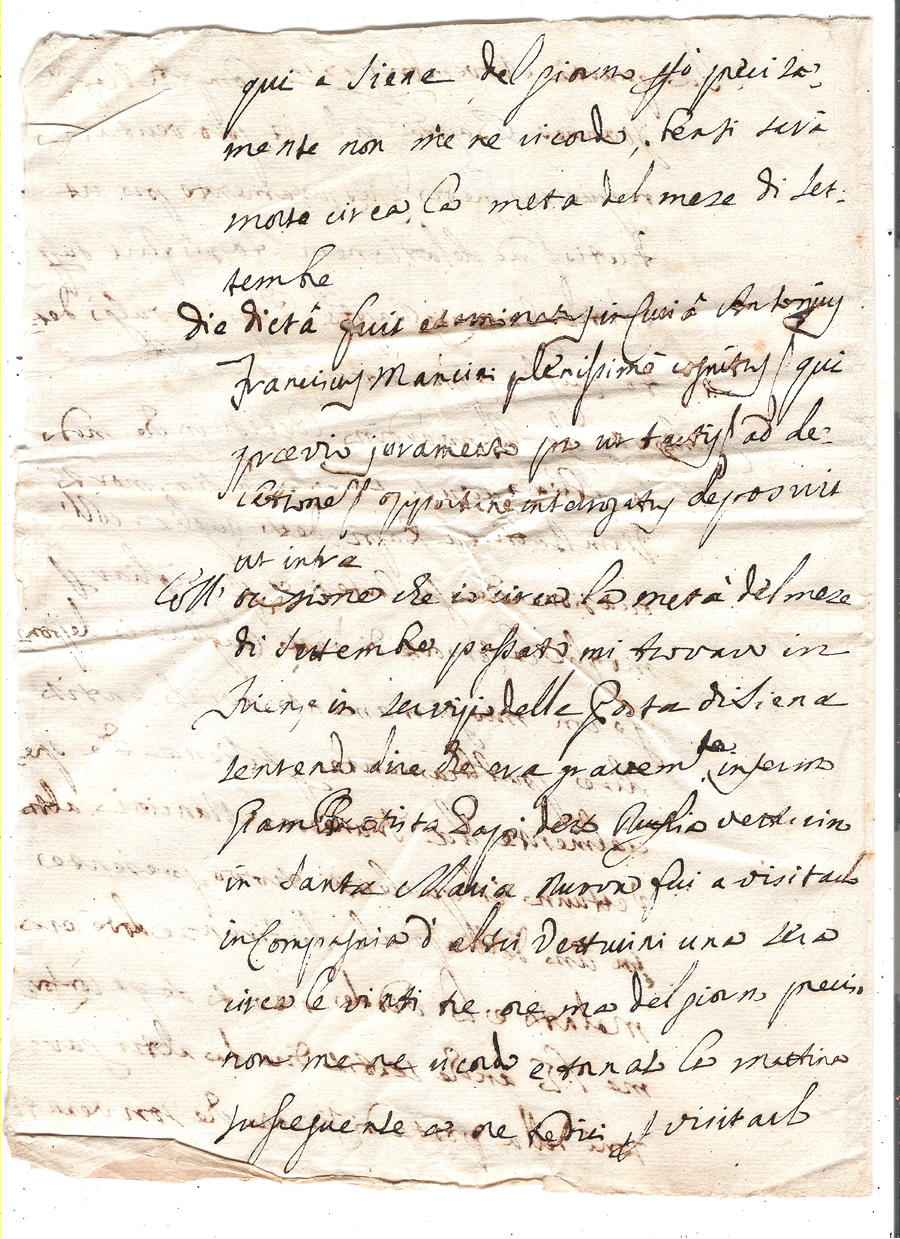 qui a Siena del giorno ppo preciza=
mente non me ne ricordo, bensi sarà
morto circa la metà del mese di Set:
tembre
die dictâ fuit examinatus in Curiâ Antonius
Franciscus Mancini plenissimè cognitus qui
prævio juramento pro ut tactis ad de:
lationes opportunè interrogatus deposuit
ut infra
occasione che io circa la metà del mese
di Settembre passato mi trovavo in
Firenze in servizij della Posta di Siena
sentendo dire che era gravem.te infermo
Giam Battista Papi detto Vetturino
in Santa Maria Nuova fui a visitarlo
in Compagnia d'altri Vetturini una sera
circa le vinti tre ore ma del giorno preciso
non me ne ricordo e tornato la mattina
susseguente a ore sedici p visitarlo